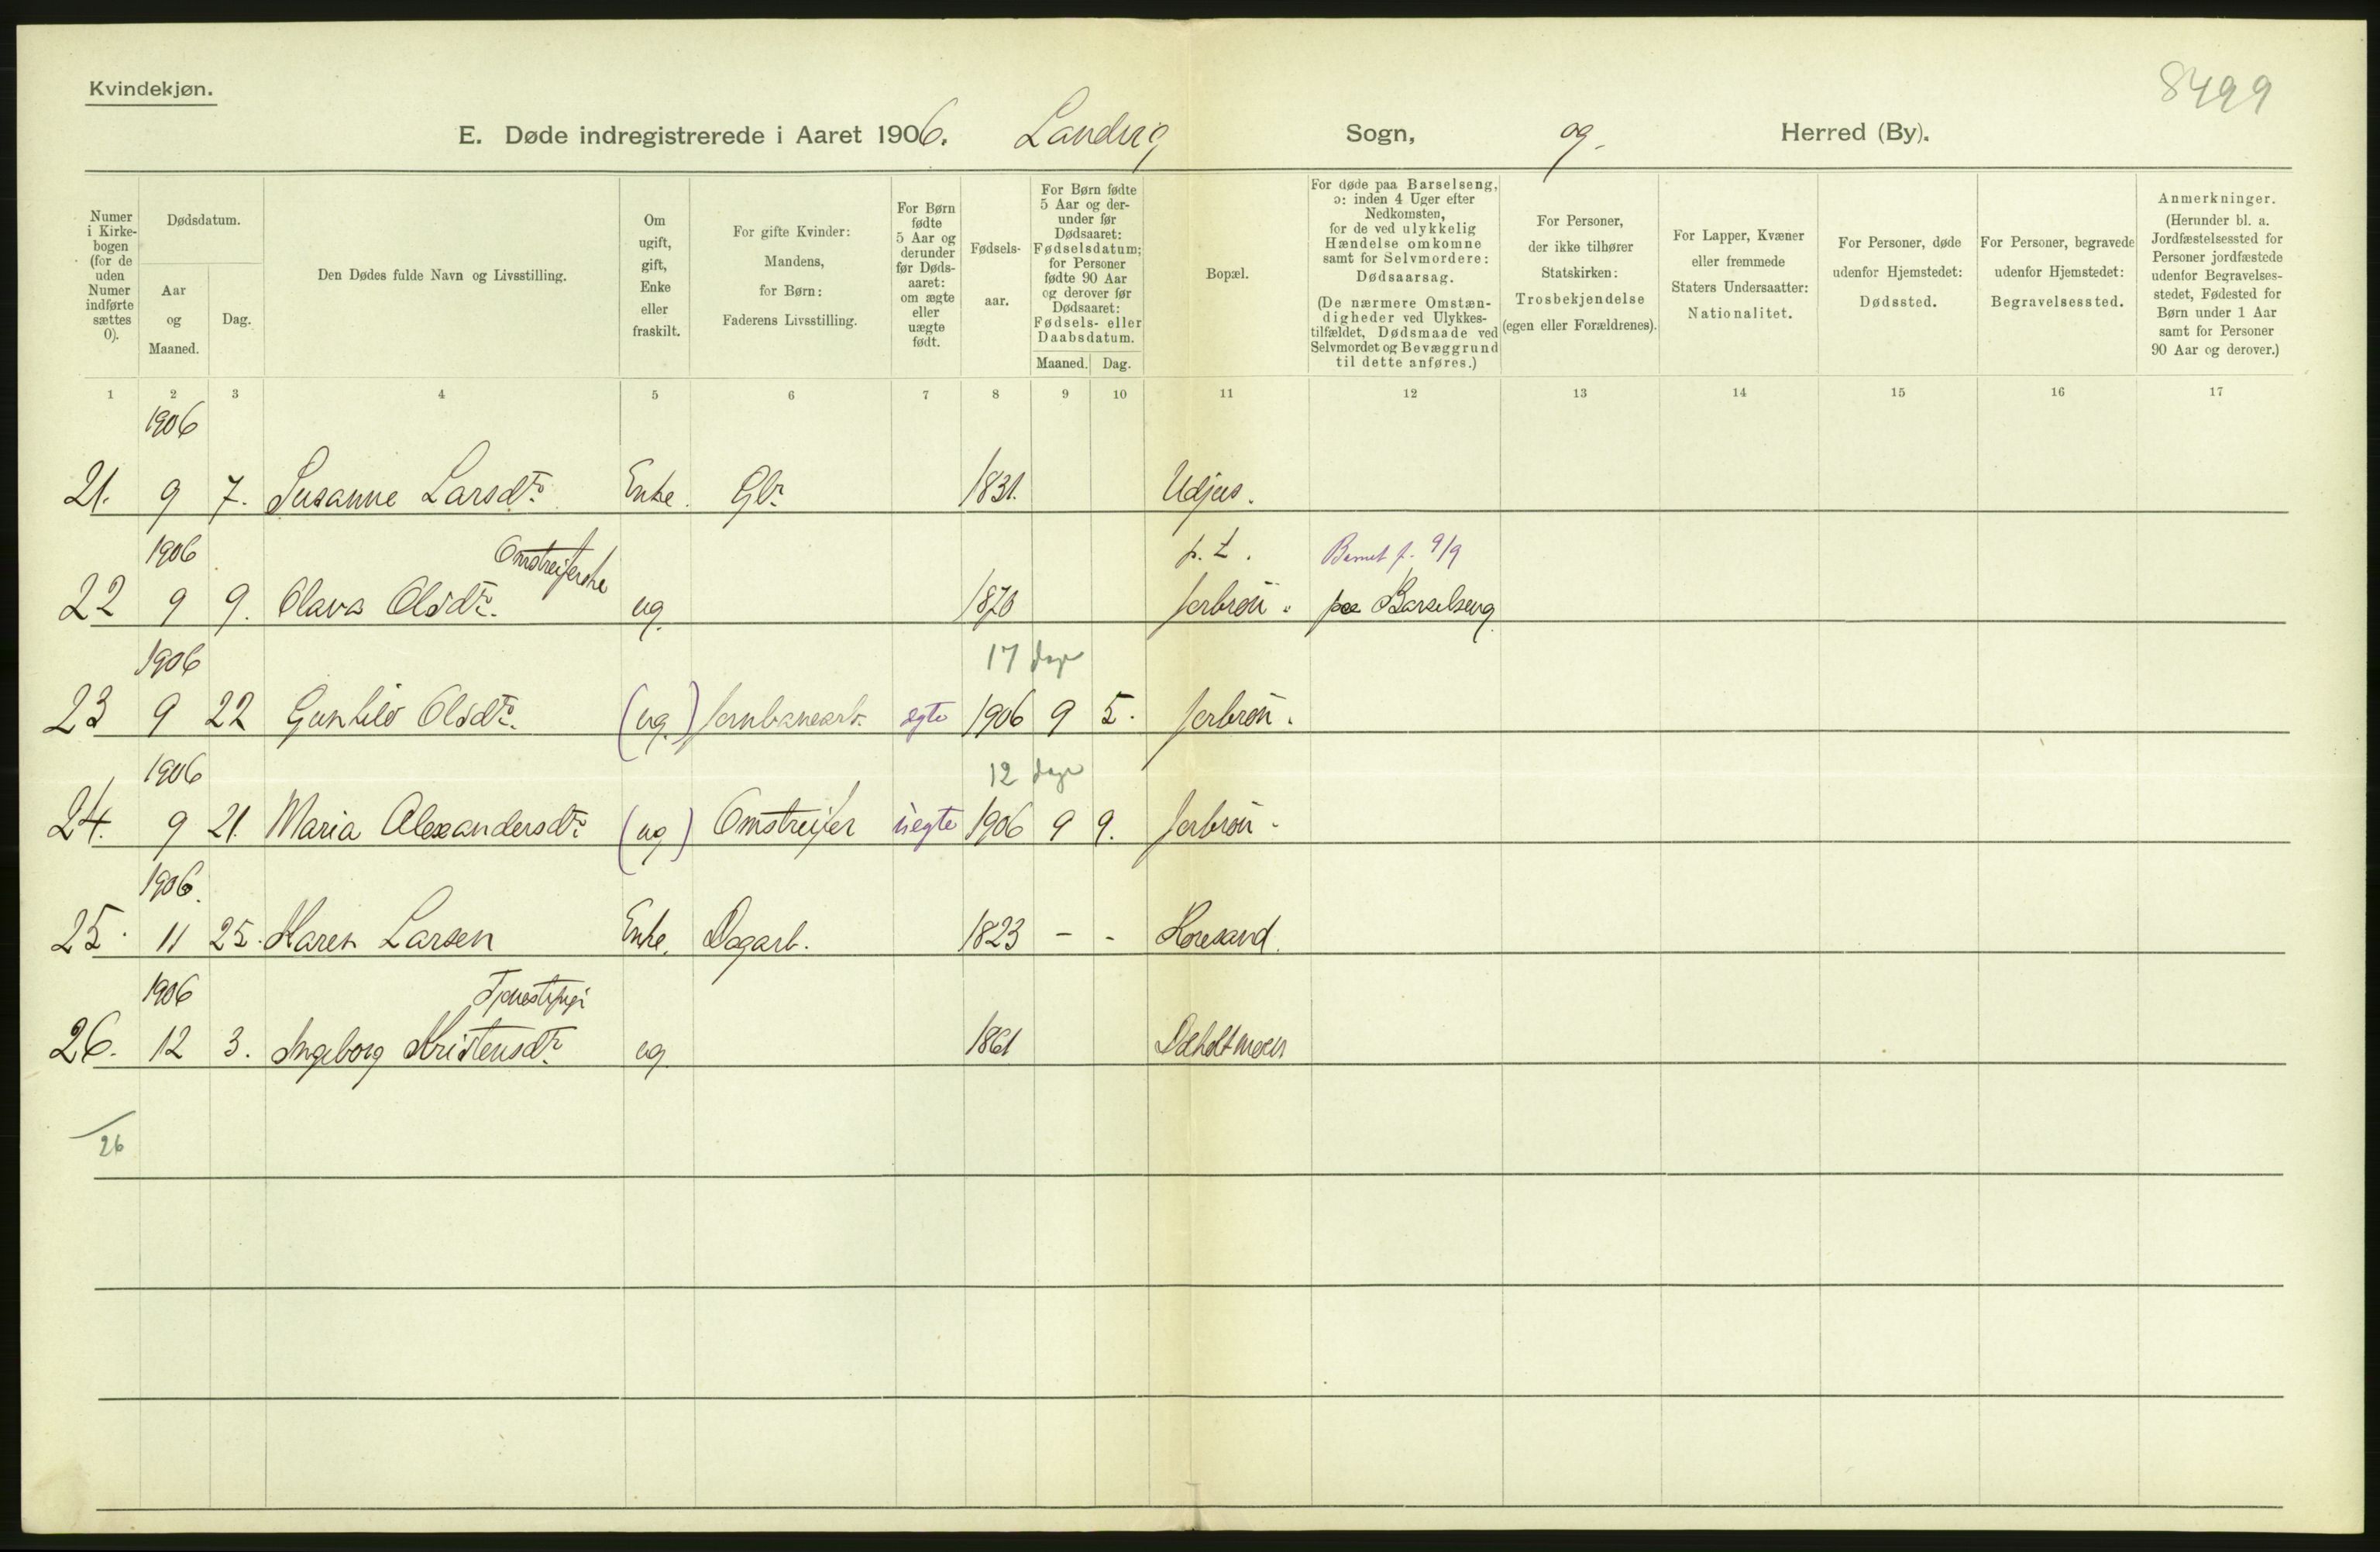 Kvindekjøn.
8499
E. Døde indregistrerede i Aaret 1906. Landvig Sogn, og Herred (By).
Numer i Kirke-bogen (for de uden Numer indførte sættes 0).
Dødsdatum.
Aar og Maaned.
Dag.
Den Dødes fulde Navn og Livsstilling.
Om ugift, gift, Enke eller fraskilt.
For gifte Kvinder: Mandens, for Børn: Faderens Livsstilling.
For Børn fødte 5 Aar og derunder før Døds-aaret: om ægte eller uægte født.
Fødsels-aar.
For Børn fødte 5 Aar og der-under før Dødsaaret: Fødselsdatum; for Personer fødte 90 Aar og derover før Dødsaaret: Fødsels- eller Daabsdatum.
Maaned. Dag.
Bopæl.
For døde paa Barselseng, ɔ: inden 4 Uger efter Nedkomsten, for de ved ulykkelig Hændelse omkomne samt for Selvmordere: Dødsaarsag.
(De nærmere Omstæn-digheder ved Ulykkes-tilfældet, Dødsmaade ved Selvmordet og Bevæggrund til dette anføres.)
For Personer, der ikke tilhører Statskirken: Trosbekjendelse (egen eller Forældrenes).
For Lapper, Kvæner eller fremmede Staters Undersaatter: Nationalitet.
For Personer, døde udenfor Hjemstedet: Dødssted.
For Personer, begravede udenfor Hjemstedet: Begravelsessted.
Anmerkninger.
(Herunder bl. a. Jordfæstelsessted for Personer jordfæstede udenfor Begravelses-stedet, Fødested for Børn under 1 Aar samt for Personer 90 Aar og derover.)
1 2 3 4 5 6 7 8 9 10 11 12 13 14 15 16 17
1906
21. 9 7. Susanne Larsdtr. Enke. Gbr. 1831. Udjus.
1906 Omstreiferske p. t. Barnet f. 9/9
22 9 9. Olava Olsdtr. ug. 1870 paa Barselseng
1906 17 dage
23 9 22 Gunhild Olsdtr. (ug.) Jernbanearb. ægte 1906 9 5.
1906 12 dage
24. 9 21. Maria Alexandersdtr. (ug) Omstreifer uegte 1906 9 9.
1906.
25. 11 25. Karen Larsen Enke. Dagarb. 1823 - -
1906 Tjenestepige
26. 12 3. Ingeborg Kristensdtr. ug. 1861
26